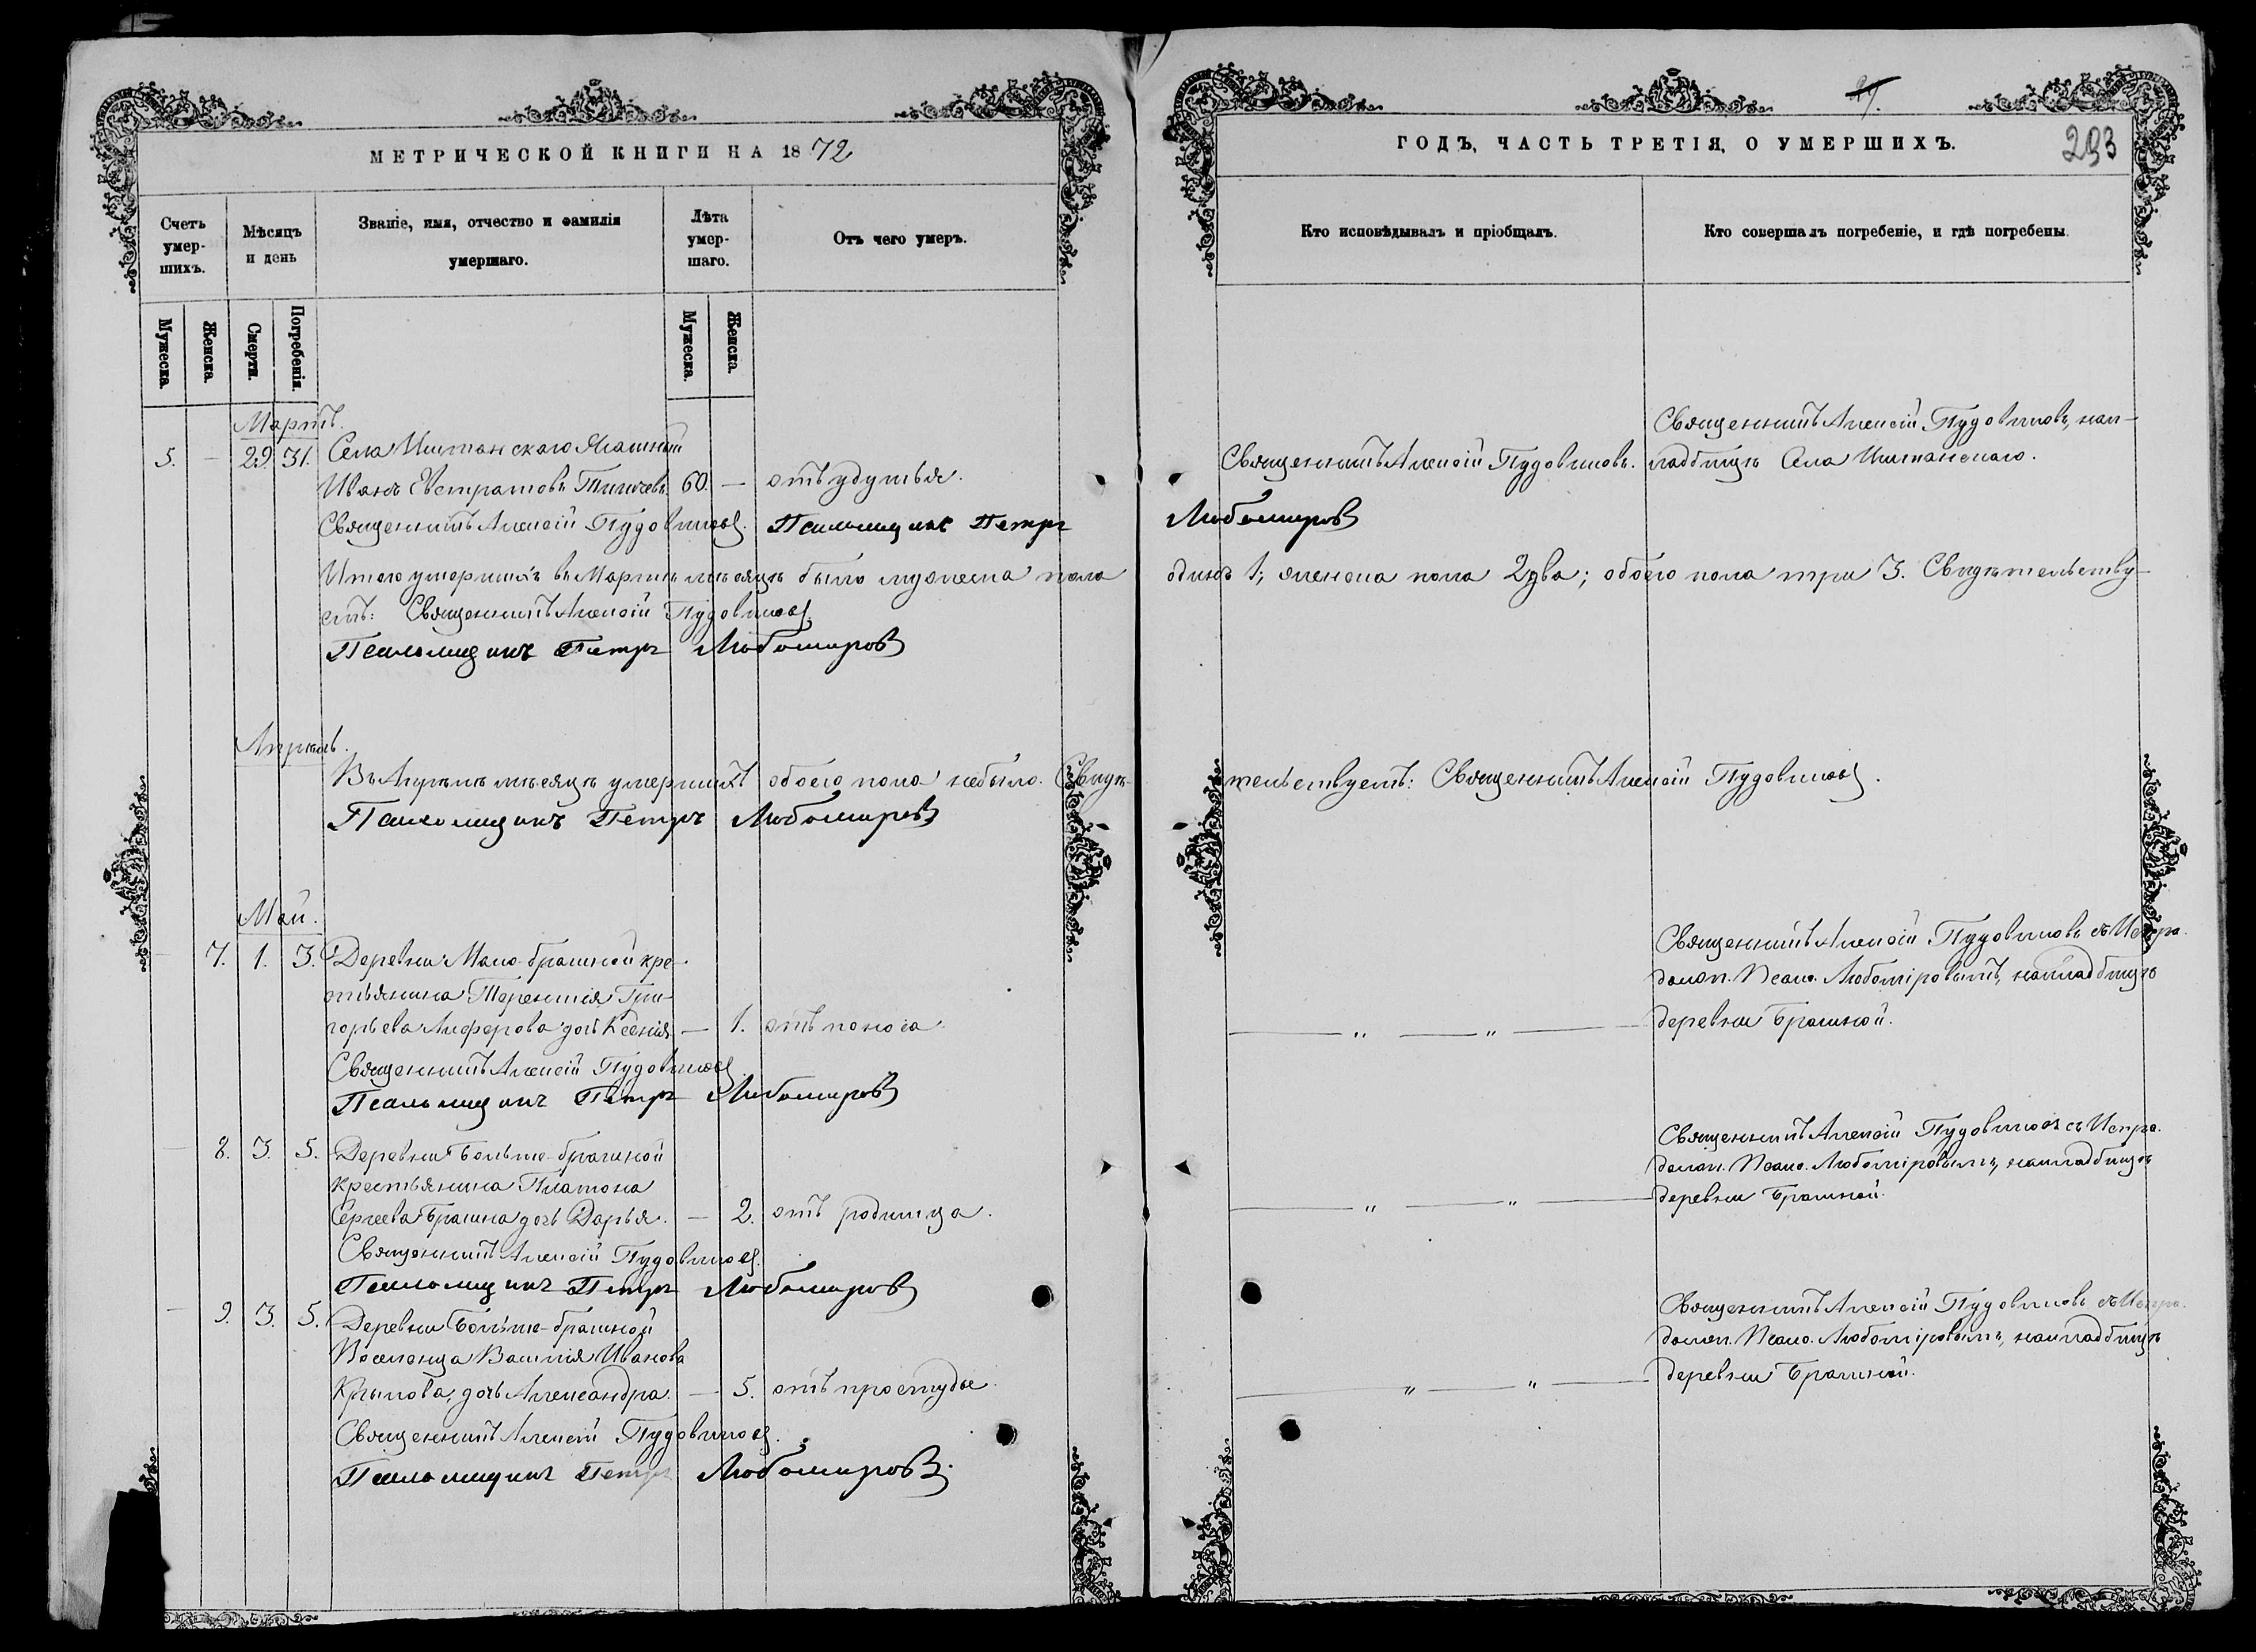 МЕТРИЧЕСКОЙ КНИГИ НА 1872
Счетъ умер-шихъ.
Мѣсяцъ и день
Званіе, имя, отчество и фамилія умершаго.
Лѣта умер-шаго.
Отъ чего умеръ.
Мужеска.
Женска.
Смерти.
Погребенія.
Мужеска.
Женска.
Мартъ.
5. — 29. 31. Села Иштанскаго
Иванъ Евстратовъ 60. — отъ удушья.
Священникъ Алексій Пудовиковъ. Псаломщикъ Петръ
Итого умершихъ въ Мартѣ мѣсяцѣ было мужеска пола
етъ: Священникъ Алексій Пудовиковъ.
Псаломщикъ Петръ Любомировъ
Апрѣль.
Въ Апрѣлѣ мѣсяцѣ умершихъ обоего пола небыло. Свидѣ-
Псаломщикъ Петръ Любомировъ
Май.
— 7. 1. 3. Деревни Мало-брагиной кре-
стьянина Терентія Гри-
горьева Алферова дочь Ксенія — 1. отъ поноса.
Священникъ Алексій Пудовиковъ
Псаломщикъ Петръ Любомировъ
— 8. 3. 5. Деревни Больше-брагиной
крестьянина Платона
Сергеева Брагина дочь Дарья. — 2. отъ родимца.
Священникъ Алексій Пудовиковъ.
Псаломщикъ Петръ Любомировъ
— 9. 3. 5. Деревни Больше-брагиной
Поселенца Василія Иванова
Крылова, дочь Александра. — 5. отъ простуды.
Священникъ Алексій Пудовиковъ.
Псаломщикъ Петръ Любомировъ.
ГОДЪ, ЧАСТЬ ТРЕТІЯ, О УМЕРШИХЪ.
293
Кто исповѣдывалъ и пріобщалъ.
Кто совершалъ погребеніе, и гдѣ погребены.
Священникъ Алексій Пудовиковъ, на к-
Священникъ Алексій Пудовиковъ. ладбищѣ Села Иштанскаго.
Любомировъ
одинъ 1; женска пола 2 два; обоего пола три 3. Свидѣтельству-
тельствуетъ: Священникъ Алексій Пудовиковъ.
Священникъ Алексій Пудовиковъ съ Испра.
долж. Псало. Любоміровымъ, на кладбищѣ
— " — " — деревни Брагиной.
Священникъ Алексій Пудовиковъ съ Испра.
долж. Псало. Любоміровымъ, на кладбищѣ
— " — " — деревни Брагиной.
Священникъ Алексій Пудовиковъ съ Испра.
долж. Псало. Любоміровымъ, на кладбищѣ
— " — " — деревни Брагиной.